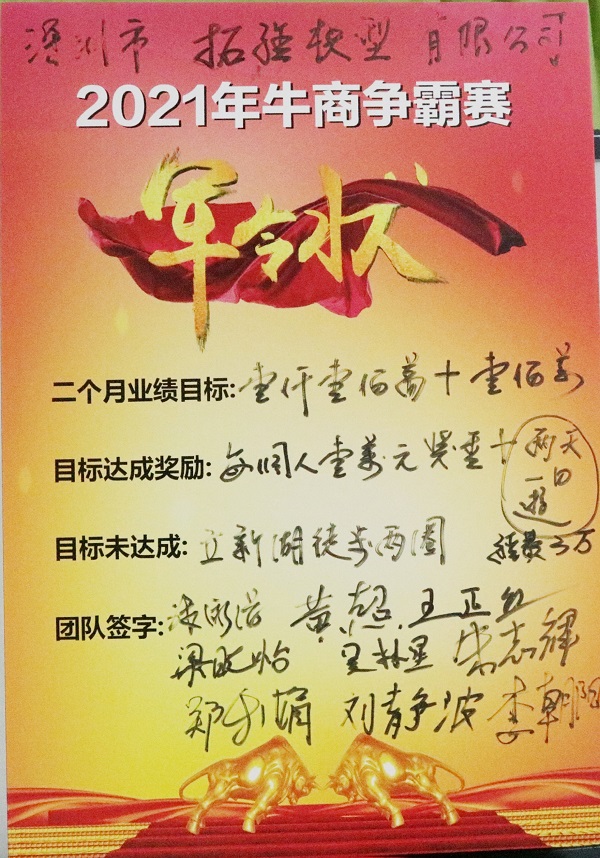 深圳市 拓强模型 有限公司
2021年牛商争霸赛
军令状
二个月业绩目标:壹仟壹佰萬+壹佰萬
目标达成奖励:每個人壹萬元奖金+两天一日游
目标未达成:立新湖徒步两圈 经费3万
团队签字: 黄超 王正
梁晓怡 志輝
郑利娟 刘静波 李朝阳